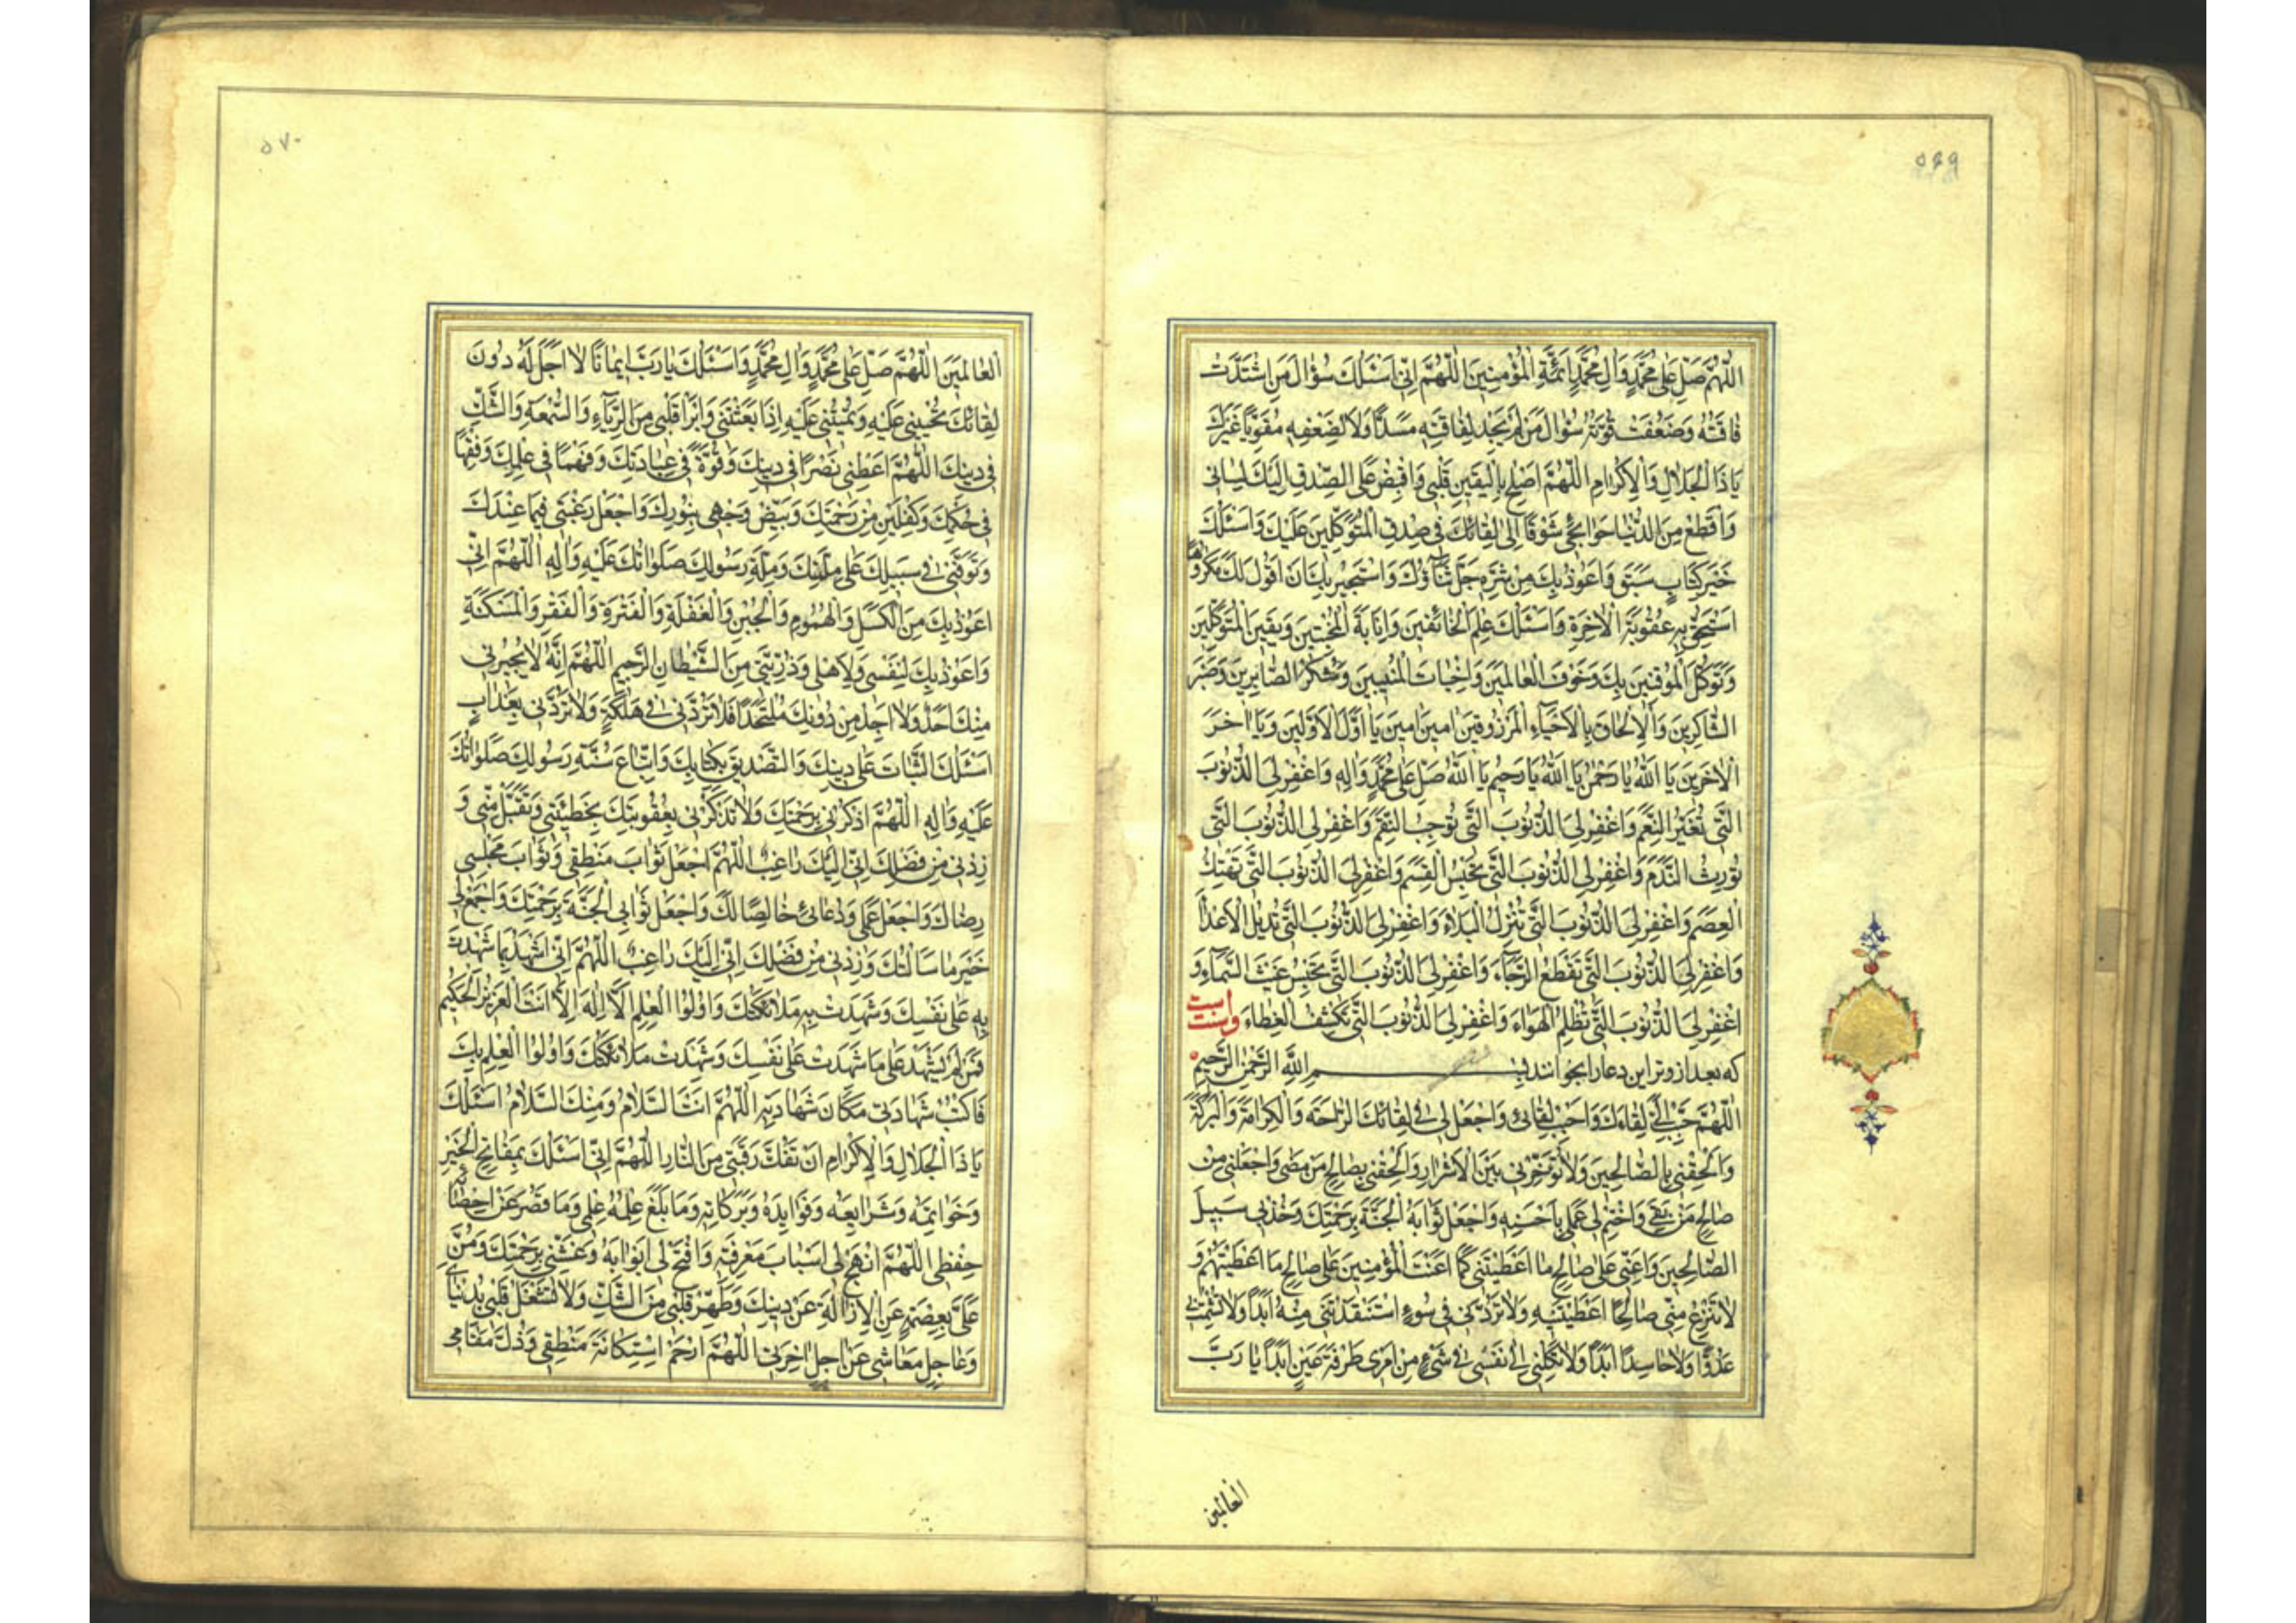 ٥٦٩
اَللّٰهُمَّ صَلِّ عَلىٰ مُحَمَّدٍ وَاٰلِ مُحَمَّدٍ اَئِمَّةِ الْمُؤْمِنِينَ اَللّٰهُمَّ اِنّى اَسْئَلُكَ سُؤٰالَ مَنِ اشْتَدَّتْ
فٰاقَتُهُ وَضَعُفَتْ قُوَّتُهُ سُؤٰالَ مَنْ لَمْ يَجِدْ لِفٰاقَتِهِ مَسَدًّا وَلاٰ لِضَعْفِهِ مُقَوِّيًا غَيْرَكَ
يٰا ذَا الْجَلاٰلِ وَالْاِكْرٰامِ اَللّٰهُمَّ اَصْلِحْ بِالْيَقينِ قَلْبى وَاقْبِضْ عَلَى الصِّدْقِ اِلَيْكَ لِسٰانى
وَاقْطَعْ مِنَ الدُّنْيٰا حَوٰائِجى شَوْقًا اِلىٰ لِقٰائِكَ فى صِدْقِ الْمُتَوَكِّلينَ عَلَيْكَ وَاَسْئَلُكَ
خَيْرَ كِتٰابٍ سَبَقَ وَاَعُوذُ بِكَ مِنْ شَرِّهِ جَلَّ ثَنٰاؤُكَ وَاَسْتَجيرُ بِكَ اَنْ اَقُولَ لَكَ مَكْرُوهًا
اَسْتَحِقُّ بِهِ عُقُوبَةَ الْاٰخِرَةِ وَاَسْئَلُكَ عِلْمَ الْخٰائِفينَ وَاِنٰابَةَ الْمُخْبِتينَ وَيَقينَ الْمُتَوَكِّلينَ
وَتَوَكُّلَ الْمُوقِنينَ بِكَ وَخَوْفَ الْعٰالِمينَ وَاِخْبٰاتَ الْمُنيبينَ وَشُكْرَ الصّٰابِرينَ وَصَبْرَ
الشّٰاكِرينَ وَالْاِلْحٰاقَ بِالْاَحْيٰاءِ الْمَرْزُوقينَ اٰمينَ اٰمينَ يٰا اَوَّلَ الْاَوَّلينَ وَيٰا اٰخِرَ
الْاٰخِرينَ يٰا اَللّٰهُ يٰا رَحْمٰنُ يٰا اَللّٰهُ يٰا رَحيمُ يٰا اَللّٰهُ صَلِّ عَلىٰ مُحَمَّدٍ وَاٰلِهِ وَاغْفِرْ لِىَ الذُّنُوبَ
الَّتى تُغَيِّرُ النِّعَمَ وَاغْفِرْ لِىَ الذُّنُوبَ الَّتى تُوجِبُ النِّقَمَ وَاغْفِرْ لِىَ الذُّنُوبَ الَّتى
تُورِثُ النَّدَمَ وَاغْفِرْ لِىَ الذُّنُوبَ الَّتى تَحْبِسُ الْقِسَمَ وَاغْفِرْ لِىَ الذُّنُوبَ الَّتى تَهْتِكُ
الْعِصَمَ وَاغْفِرْ لِىَ الذُّنُوبَ الَّتى تُنْزِلُ الْبَلاٰءَ وَاغْفِرْ لِىَ الذُّنُوبَ الَّتى تُديلُ الْاَعْدٰاءَ
وَاغْفِرْ لِىَ الذُّنُوبَ الَّتى تَقْطَعُ الرَّجٰاءَ وَاغْفِرْ لِىَ الذُّنُوبَ الَّتى تَحْبِسُ غَيْثَ السَّمٰاءِ وَ
اغْفِرْ لِىَ الذُّنُوبَ الَّتى تُظْلِمُ الْهَوٰاءَ وَاغْفِرْ لِىَ الذُّنُوبَ الَّتى تَكْشِفُ الْغِطٰاءَ وسنت است
كه بعد از وتر اين دعا را بخوانند بِسْمِ اللّٰهِ الرَّحْمٰنِ الرَّحيمِ
اَللّٰهُمَّ حَبِّبْ اِلَىَّ لِقٰاءَكَ وَاَحِبَّ لِقٰائى وَاجْعَلْ لى فى لِقٰائِكَ الرّٰاحَةَ وَالْكَرٰامَةَ وَالْبَرَكَةَ
وَاَلْحِقْنى بِالصّٰالِحينَ وَلاٰ تُؤَخِّرْنى بَيْنَ الْاَشْرٰارِ وَاَلْحِقْنى بِصٰالِحِ مَنْ مَضىٰ وَاجْعَلْنى مِنْ
صٰالِحِ مَنْ بَقِىَ وَاخْتِمْ لى عَمَلى بِاَحْسَنِهِ وَاجْعَلْ ثَوٰابَهُ الْجَنَّةَ بِرَحْمَتِكَ وَخُذْ بى سَبيلَ
الصّٰالِحينَ وَاَعِنّى عَلىٰ صٰالِحِ مٰا اَعْطَيْتَنى كَمٰا اَعَنْتَ الْمُؤْمِنينَ عَلىٰ صٰالِحِ مٰا اَعْطَيْتَهُمْ وَ
لاٰ تَنْزِعْ مِنّى صٰالِحًا اَعْطَيْتَنيهِ وَلاٰ تَرُدَّنى فى سُوءٍ اسْتَنْقَذْتَنى مِنْهُ اَبَدًا وَلاٰ تُشْمِتْ بى
عَدُوًّا وَلاٰ حٰاسِدًا اَبَدًا وَلاٰ تَكِلْنى اِلىٰ نَفْسى فى شَىْءٍ مِنْ اَمْرى طَرْفَةَ عَيْنٍ اَبَدًا يٰا رَبَّ
الْعٰالَمينَ
٥٧٠
الْعٰالَمينَ اَللّٰهُمَّ صَلِّ عَلىٰ مُحَمَّدٍ وَاٰلِ مُحَمَّدٍ وَاَسْئَلُكَ يٰا رَبَّ ايمٰانًا لاٰ اَجَلَ لَهُ دُونَ
لِقٰائِكَ تُحْيينى عَلَيْهِ وَتُميتُنى عَلَيْهِ اِذٰا بَعَثْتَنى وَابْرَأْ قَلْبى مِنَ الرِّيٰاءِ وَالسُّمْعَةِ وَالشَّكِّ
فى دينِكَ اَللّٰهُمَّ اَعْطِنى نَصْرًا فى دينِكَ وَقُوَّةً فى عِبٰادَتِكَ وَفَهْمًا فى عِلْمِكَ وَفِقْهًا
فى حُكْمِكَ وَكِفْلَيْنِ مِنْ رَحْمَتِكَ وَبَيِّضْ وَجْهى بِنُورِكَ وَاجْعَلْ رَغْبَتى فيمٰا عِنْدَكَ
وَتَوَفَّنى فى سَبيلِكَ عَلىٰ مِلَّتِكَ وَمِلَّةِ رَسُولِكَ صَلَوٰاتُكَ عَلَيْهِ وَاٰلِهِ اَللّٰهُمَّ اِنّى
اَعُوذُ بِكَ مِنَ الْكَسَلِ وَالْهُمُومِ وَالْجُبْنِ وَالْغَفْلَةِ وَالْفَتْرَةِ وَالْفَقْرِ وَالْمَسْكَنَةِ
وَاَعُوذُ بِكَ لِنَفْسى وَلِاَهْلى وَذُرِّيَّتى مِنَ الشَّيْطٰانِ الرَّجيمِ اَللّٰهُمَّ اِنَّهُ لاٰ يُجيرُنى
مِنْكَ اَحَدٌ وَلاٰ اَجِدُ مِنْ دُونِكَ مُلْتَحَدًا فَلاٰ تَرُدَّنى فى هَلَكَةٍ وَلاٰ تَرُدَّنى بِعَذٰابٍ
اَسْئَلُكَ الثَّبٰاتَ عَلىٰ دينِكَ وَالتَّصْديقَ بِكِتٰابِكَ وَاتِّبٰاعَ سُنَّةِ رَسُولِكَ صَلَوٰاتُكَ
عَلَيْهِ وَاٰلِهِ اَللّٰهُمَّ اذْكُرْنى بِرَحْمَتِكَ وَلاٰ تَذْكُرْنى بِعُقُوبَتِكَ بِخَطيئَتى وَتَقَبَّلْ مِنّى وَ
زِدْنى مِنْ فَضْلِكَ اِنّى اِلَيْكَ رٰاغِبٌ اَللّٰهُمَّ اجْعَلْ ثَوٰابَ مَنْطِقى وَثَوٰابَ مَجْلِسى
رِضٰاكَ وَاجْعَلْ عَمَلى وَدُعٰائى خٰالِصًا لَكَ وَاجْعَلْ ثَوٰابِى الْجَنَّةَ بِرَحْمَتِكَ وَاجْمَعْ لى
خَيْرَ مٰا سَاَلْتُكَ وَزِدْنى مِنْ فَضْلِكَ اِنّى اِلَيْكَ رٰاغِبٌ اَللّٰهُمَّ اِنّى اَشْهَدُ بِمٰا شَهِدْتَ
بِهِ عَلىٰ نَفْسِكَ وَشَهِدَتْ بِهِ مَلاٰئِكَتُكَ وَاُولُوا الْعِلْمِ اَنْ لاٰ اِلٰهَ اِلاّٰ اَنْتَ الْعَزيزُ الْحَكيمُ
فَمَنْ لَمْ يَشْهَدْ عَلىٰ مٰا شَهِدْتَ عَلىٰ نَفْسِكَ وَشَهِدَتْ مَلاٰئِكَتُكَ وَاُولُوا الْعِلْمِ بِكَ
فَاكْتُبْ شَهٰادَتى مَكٰانَ شَهٰادَتِهِ اَللّٰهُمَّ اَنْتَ السَّلاٰمُ وَمِنْكَ السَّلاٰمُ اَسْئَلُكَ
يٰا ذَا الْجَلاٰلِ وَالْاِكْرٰامِ اَنْ تَفُكَّ رَقَبَتى مِنَ النّٰارِ اَللّٰهُمَّ اِنّى اَسْئَلُكَ بِمَفٰاتِحِ الْخَيْرِ
وَخَوٰاتِمَهُ وَشَرٰايِعَهُ وَفَوٰايِدَهُ وَبَرَكٰاتِهِ وَمٰا بَلَغَ عِلْمُهُ عِلْمى وَمٰا قَصُرَ عَنْ اِحْصٰائِهِ
حِفْظى اَللّٰهُمَّ انْهَجْ لى اَسْبٰابَ مَعْرِفَتِهِ وَافْتَحْ لى اَبْوٰابَهُ وَغَشِّنى بِرَحْمَتِكَ وَمُنَّ
عَلَىَّ بِعِصْمَةٍ عَنِ الْاِزٰالَةِ عَنْ دينِكَ وَطَهِّرْ قَلْبى مِنَ الشَّكِّ وَلاٰ تَشْغَلْ قَلْبى بِدُنْيٰاىَ
وَعٰاجِلِ مَعٰاشى عَنْ اٰجِلِ اٰخِرَتى اَللّٰهُمَّ ارْحَمْ اسْتِكٰانَةَ مَنْطِقى وَذُلَّ مَقٰامى